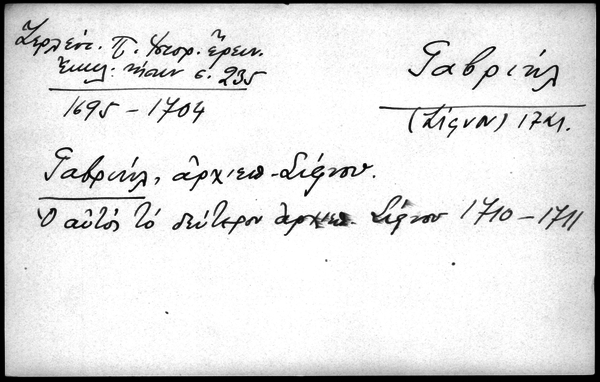 Ζερλέντ. Π. Ἱστορ. ἔρευν.
Ἐκκλ. νήσων σ. 235
1695 – 1704
Γαβριήλ
(Σίφνου)
Γαβριήλ, ἀρχιεπ. Σίφνου.
Ὁ αὐτὸς τὸ δεύτερον ἀρχιεπ. Σίφνου 1710 – 1711